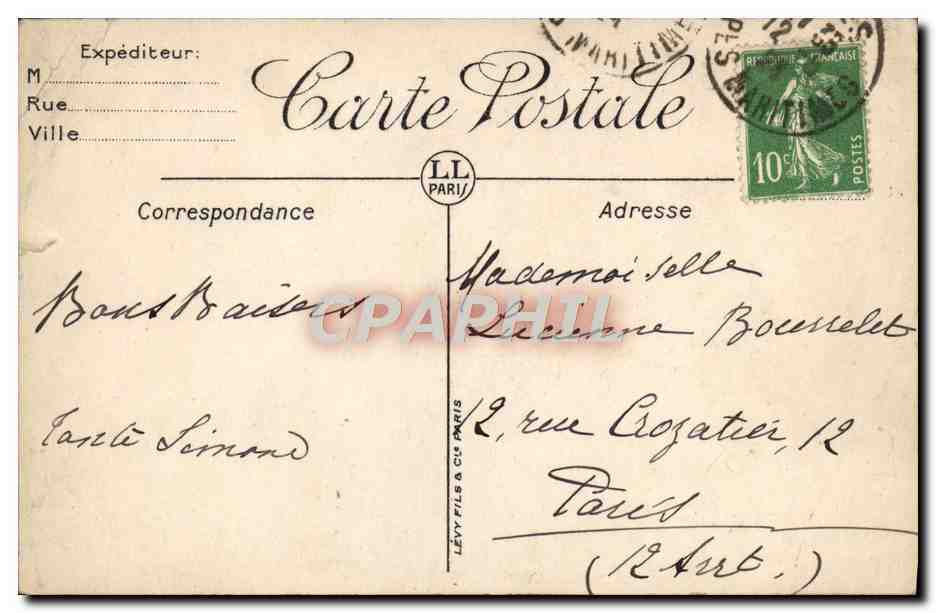 Expéditeur:
M
Rue
Ville
Carte Postale
LL
PARIS
Correspondance
Adresse
RÉPUBLIQUE FRANÇAISE
10c
POSTES
MARITIMES
Bons Baisers
Tante Simone
Mademoiselle
Lucienne Bousselet
12, rue Crozatier, 12
Paris
(12 Arrt.)
LÉVY FILS & Cie PARIS
CPAPHIL